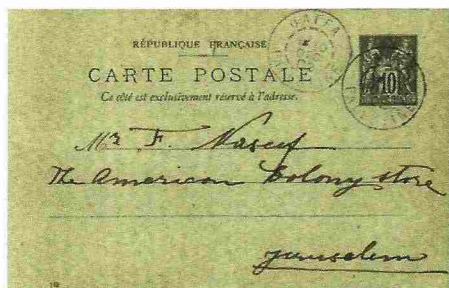 RÉPUBLIQUE FRANÇAISE
CARTE POSTALE
Ce côté est exclusivement réservé à l'adresse.
10
Mr F. Naseef
The American Colony store
Jerusalem